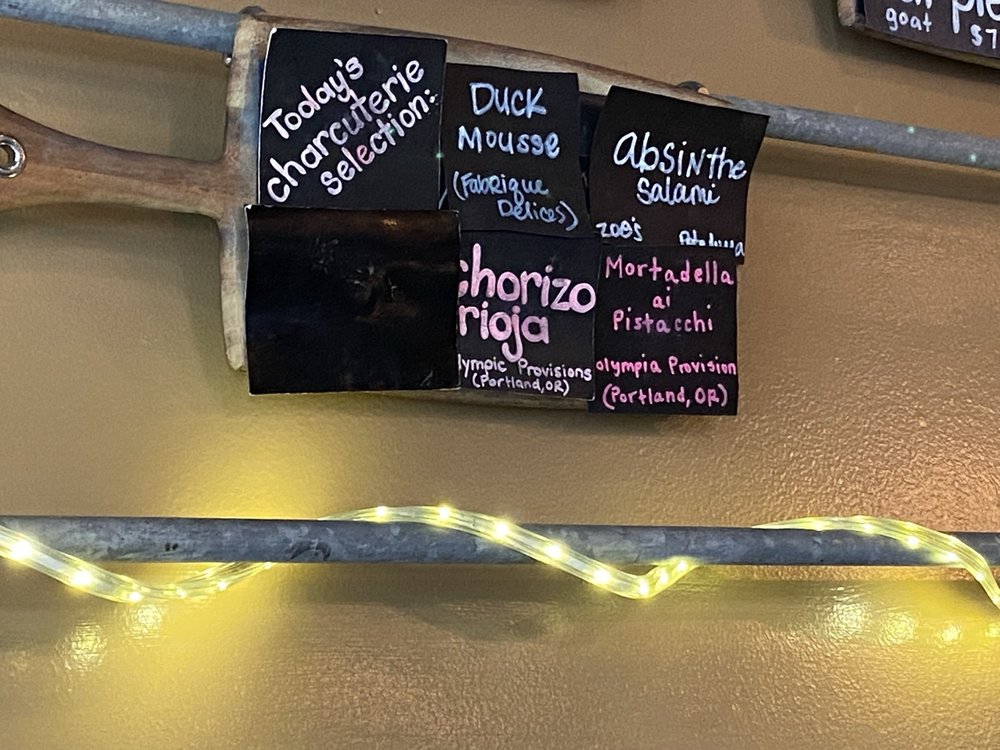 Today's
charcuterie
selection:
DUCK
Mousse
(Fabrique
Délices)
absinthe
salami
zoe's Petaluma
chorizo
rioja
lympic Provisions
(Portland, OR)
Mortadella
ai
Pistacchi
olympia Provision
(Portland, OR)
goat $7